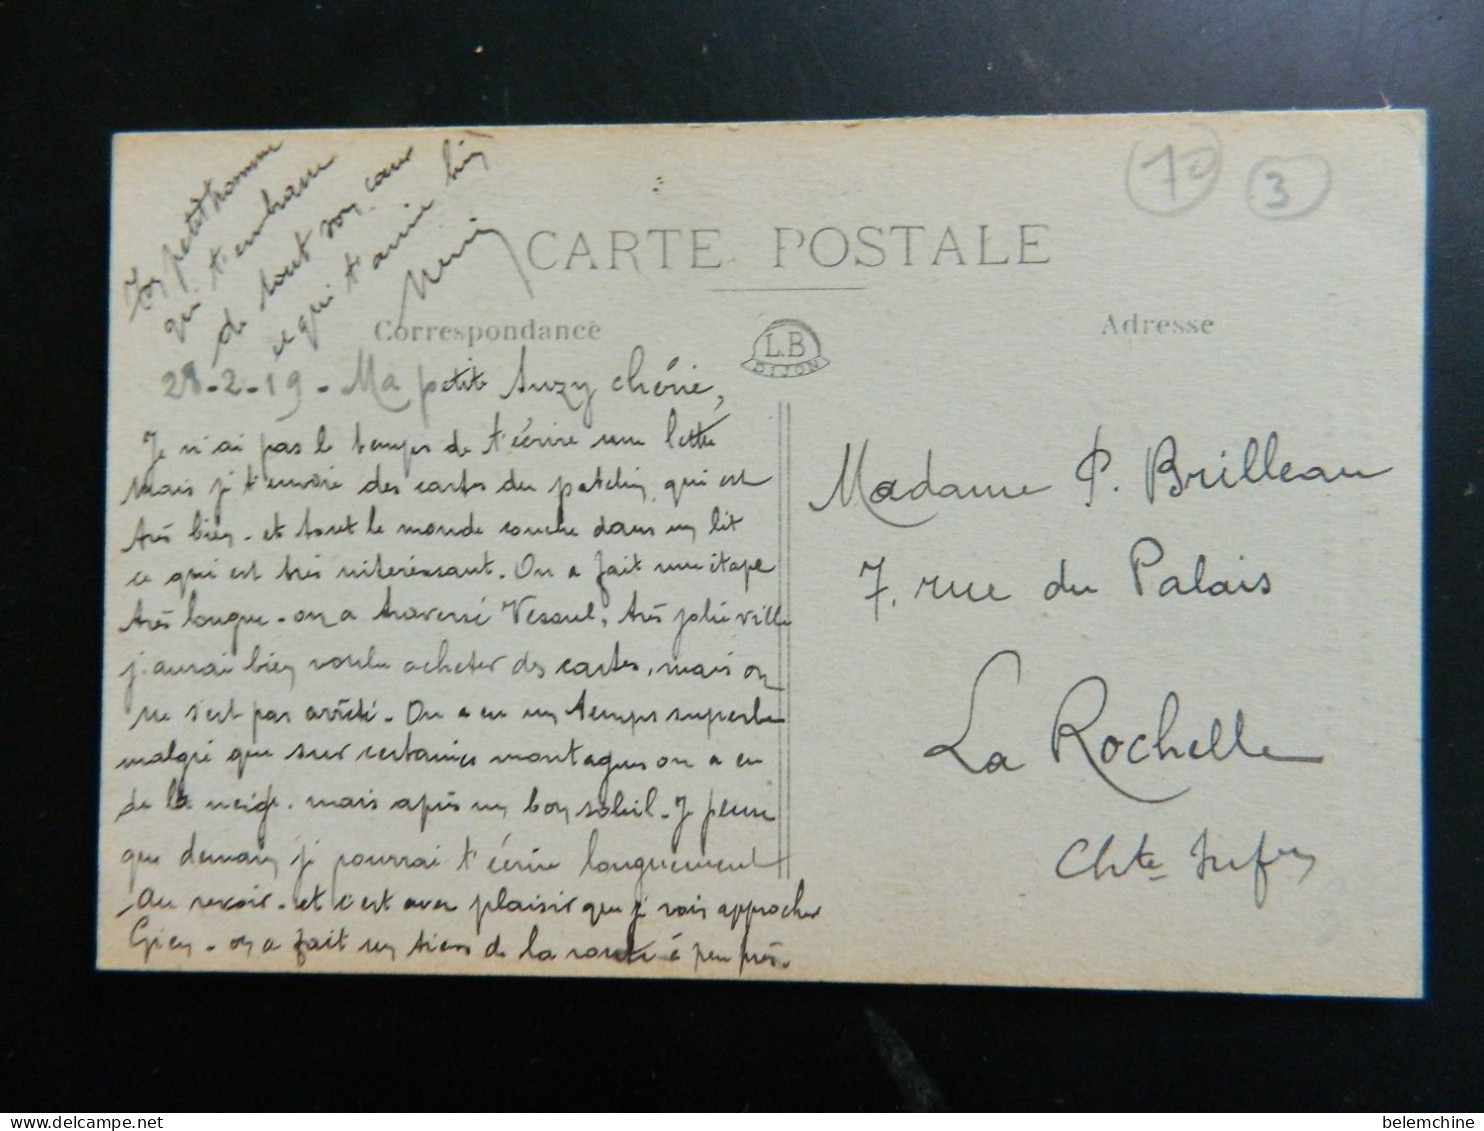 Ton petit homme
qui t'embrasse
de tout son cœur
et qui t'aime bien
CARTE POSTALE
Correspondance
Adresse
L.B
DIJON
70
3
28-2-19 - Ma petite Suzy chérie,
Je n'ai pas le temps de t'écrire une lettre
mais je t'envoie des cartes du patelin, qui est
très bien - et tout le monde couche dans un lit
ce qui est très intéressant. On a fait une étape
très longue - on a traversé Vesoul, très jolie ville
j'aurai bien voulu acheter des cartes, mais on
ne s'est pas arrêté - On a eu un temps superbe
malgré que sur certaines montagnes on a eu
de la neige, mais après un bon soleil - Je pense
que demain je pourrai t'écrire longuement
Au revoir - et c'est avec plaisir que je vais approcher
Gien - on a fait un tiers de la route à peu près.
Madame P. Brilleau
7, rue du Palais
La Rochelle
Chte Infre
belemchine